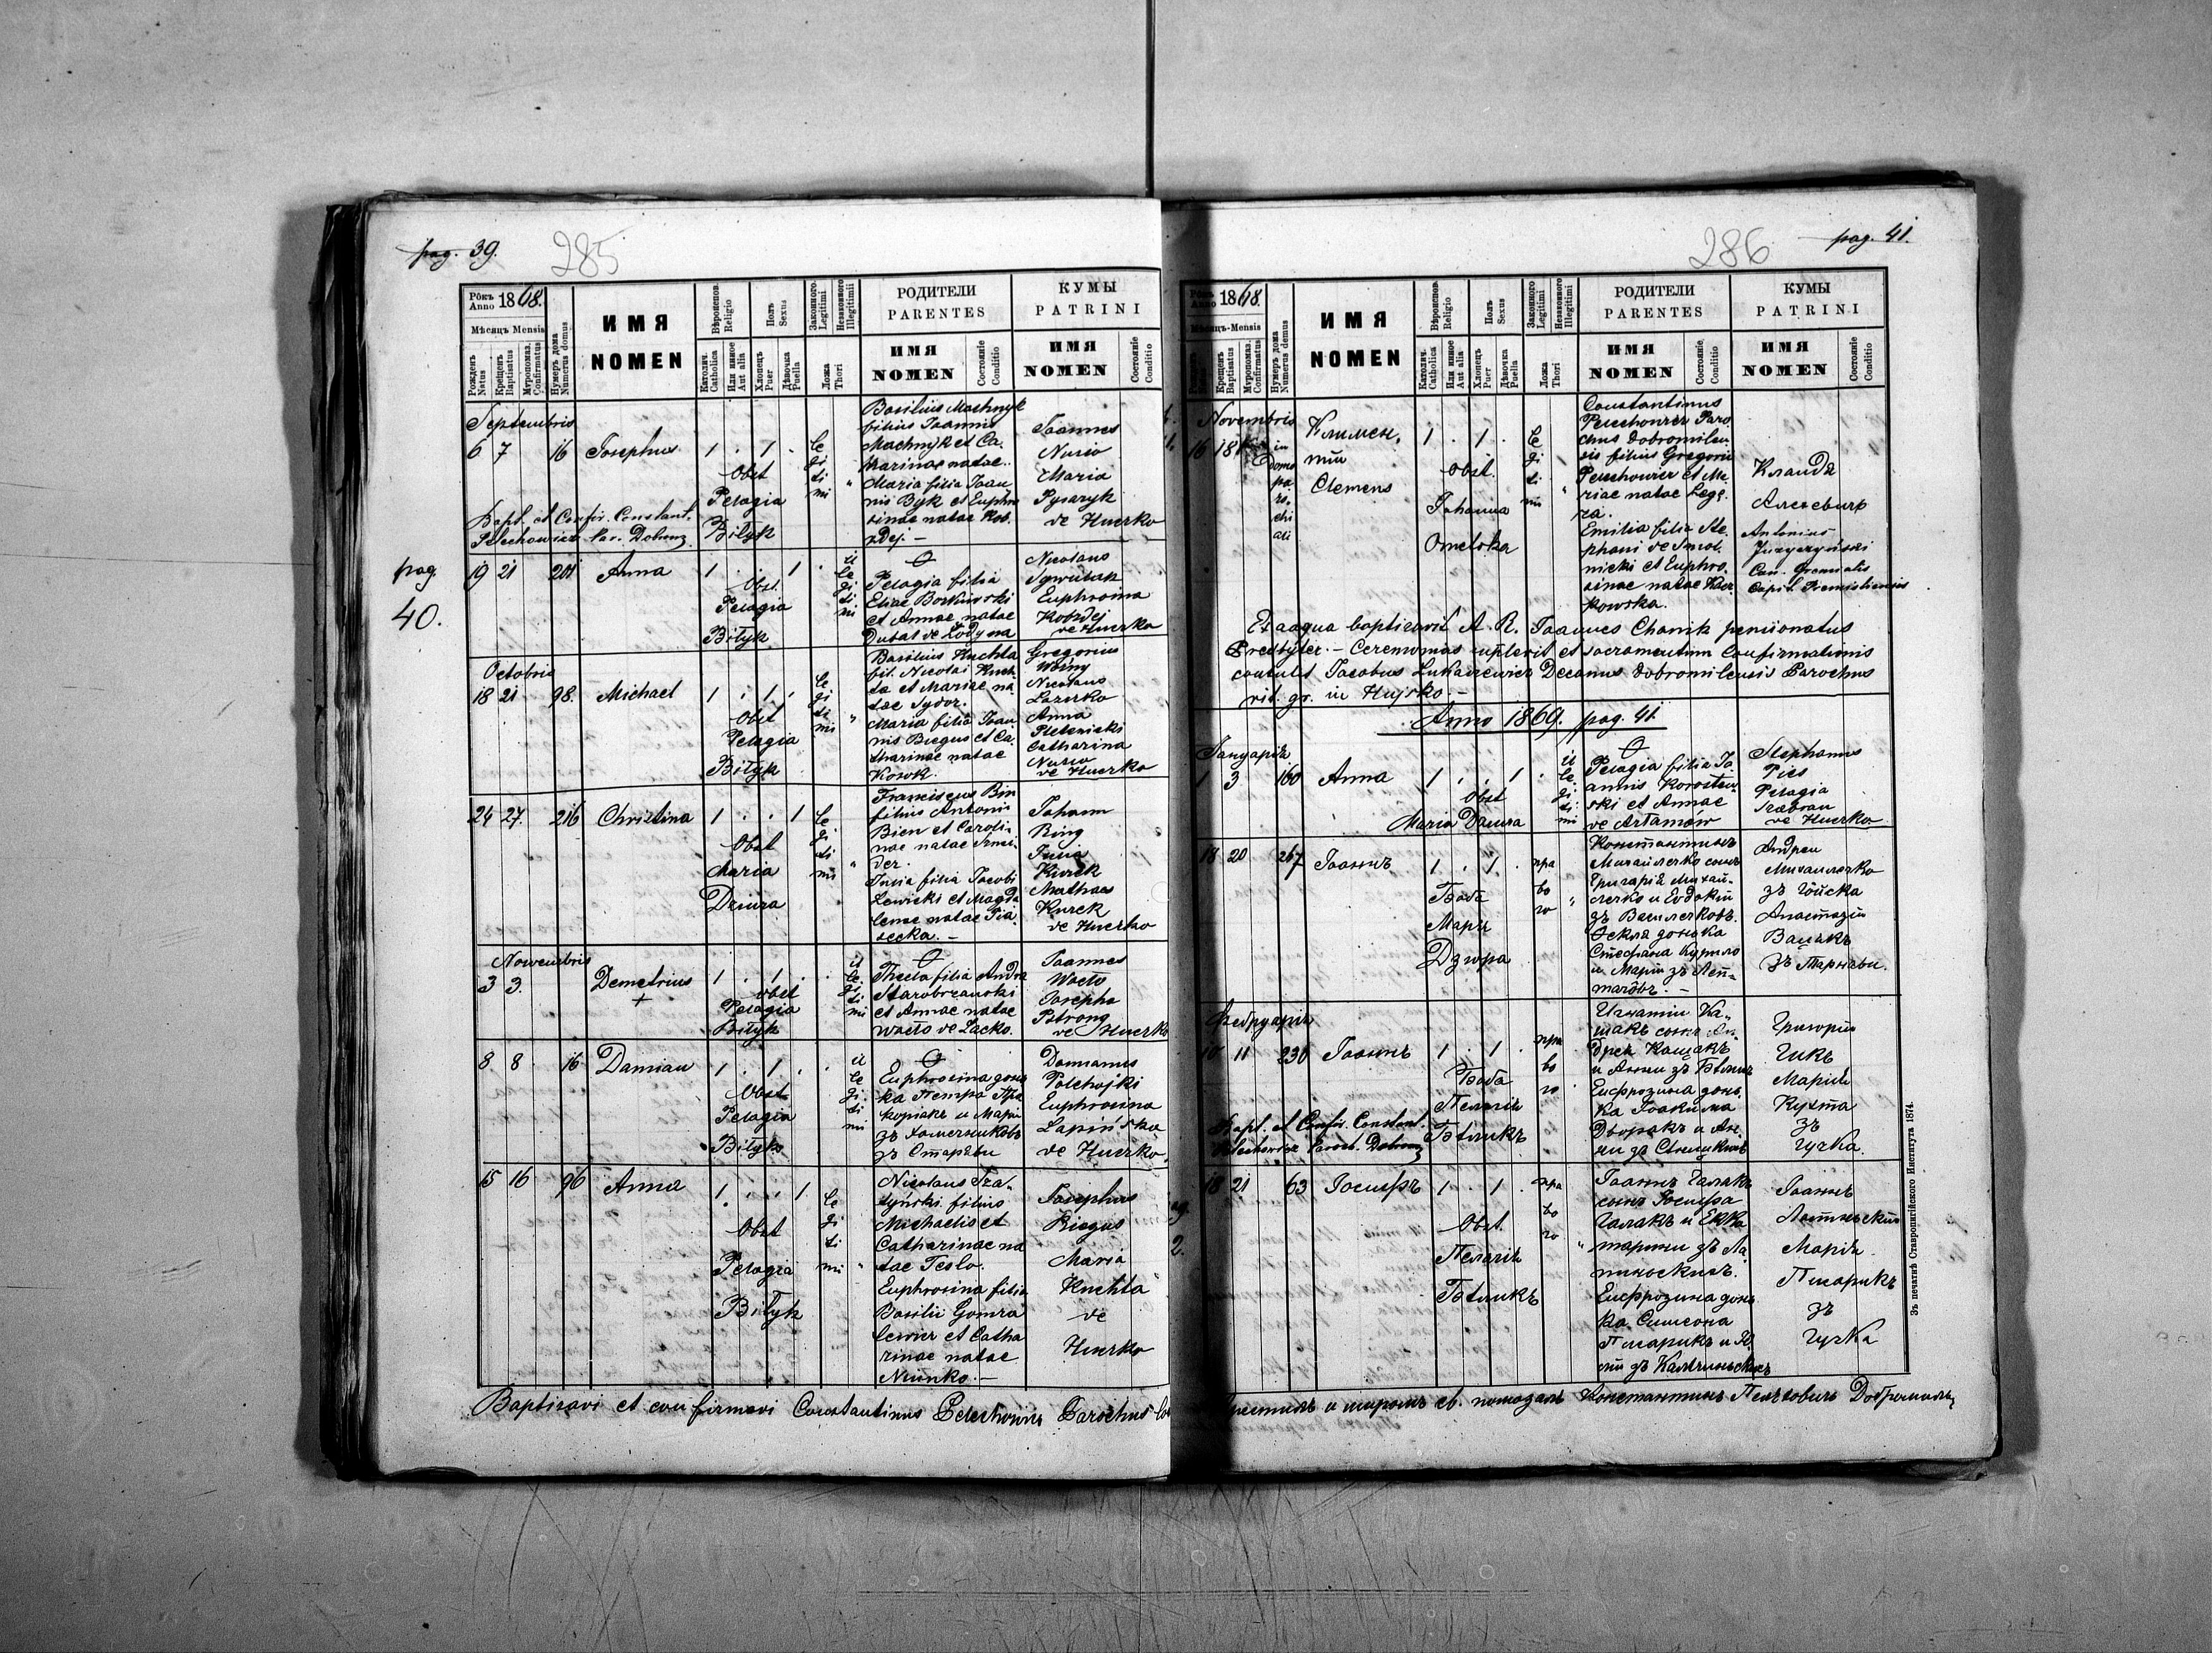 pag. 39.
285
Рôкъ Anno 1868.
Мѣсяцъ Mensis
Рожденъ Natus
Крещенъ Baptisatus
Мvропомаз. Confirmatus
Нумеръ дома Numerus domus
ИМЯ
NOMEN
Вѣроиспов. Religio
Католич. Catholica
Или инное Aut alia
Полъ Sexus
Хлопецъ Puer
Дѣвочка Puella
Законного Legitimi
Незаконного Illegitimii
Ложа Thori
РОДИТЕЛИ
PARENTES
ИМЯ
NOMEN
Состояніе Conditio
КУМЫ
PATRINI
ИМЯ
NOMEN
Состояніе Conditio
Septembris
6 7 16 Josephus 1 . 1 .
Obst
Pelagia
Biłyk
le
gi
ti
mi "
Basilius Machnyk
filius Joannis
Machnyk et Ca.
tharinae natae
Maria filia Joan
nis Byk et Euphro
sinae natae Kob.
zdej. —
Joannes
Nusio
Maria
Pysaryk
de Huczko
Bapt. et Confir. Constant.
Pelechowicz Par. Dobrom.
pag.
40.
19 21 201 Anna 1 . . 1 .
Obst.
Pelagia
Biłyk
il
le
gi
ti
mi
Pelagia filia
Eliae Borkowski
et Annae natae
Dubas de Łodyna
Nicolaus
Euphrosina
Kobzdej
de Huczko
Octobris
18 21 98. Michael 1 . 1 .
Obst
Pelagia
Biłyk
le
gi
ti
mi "
Basilius Kuchta
fil. Nicolai Kuch
ta et Mariae na
tae Sydor.
Maria filia Joan
nis Biegus et Ca.
tharinae natae
Kosok.
Gregorius
Worny
Nicolaus
Lazurko
Anna
Pletenicki
Catharina
Nusio
de Huczko
24 27. 216 Christina 1 . . 1
Obst
Maria
Dziura
le
gi
ti
mi "
Franciscus Bin
filius Antonii
Bien et Caroli
nae natae
Julia filia Jacobi
Lewicki et Magda
lenae natae Pia
secka. —
Johann
Ring
Julia
Kurek
Mathaes
Kurek
de Huczko
Novembris
3 3. Demetrius 1 . 1 . .
+
obst
Pelagia
Biłyk
il
le
gi
ti
mi
Thecla filia Andre
Starobrzanski
et Annae natae
Wasto de Lacko.
Joannes
Wasto
Josepha
Pstrong
de Huczko
8 8 16 Damian 1 . 1 . .
Obst
Pelagia
Biłyk
il
le
gi.
ti
mi
Euphrosina донь
ка Петра Пра
корiакъ и Марiи
зъ Хомечниковъ
зъ Старявы
Damianus
Polchojski
Euphrosina
Lapińska
de Huczko.
15 16 96 Anna 1 . . 1
Obst
Pelagia
Biłyk
le
gi
ti
mi "
Nicolaus Tra-
tyński filius
Michaelis et
Catharinae na
tae Teslo.
Euphrosina filia
Basilii Gomra
lewicz et Catha
rinae natae
Niunko. —
Josephus
Biegus
Maria
Kuchta
de
Huczko
Baptisavi et confirmavi Constantinus Pelechowicz Parochus
286
pag. 41.
Рôкъ Anno 1868.
Мѣсяцъ-Mensis
Крещенъ Baptisatus
Мvропомаз. Confirmatus
Нумеръ дома Numerus domus
ИМЯ
NOMEN
Вѣроиспов. Religio
Католич. Catholica
Или инное Aut alia
Полъ Sexus
Хлопецъ Puer
Дѣвочка Puella
Законного Legitimi
Незаконного Illegitimi
Ложа Thori
РОДИТЕЛИ
PARENTES
ИМЯ
NOMEN
Состояніе Conditio
КУМЫ
PATRINI
ИМЯ
NOMEN
Состояніе Conditio
Novembris
16 18 in
domo
pa
ro.
chi
ali
Климен,
тiй
Clemens
1 . 1 .
Obst.
Johanna
Omelska
le
gi
ti
mi "
Constantinus
Pelechowicz Paro
chus Dobromilen.
sis filius Gregorii
Pelechowicz et Ma.
riae natae Legę.
za.
Emilia filia Ste.
phani de Smol.
nicki et Euphro.
sinae natae Kacz.
kowska.
Клавдiя
Алексевичъ
Antonius
Juzyczyński
Can. Gremialis
Capit. Premisliensis
Ex aqua baptisavit A. R. Joannes Chanik pensionatus
Presbyter. — Ceremonias suplevit et sacramentum Confirmationis
contulit Jacobus Lukasiewicz Decanus Dobromilensis Parochus
rit. gr. in Hujsko. —
Anno 1869. pag. 41.
Януарiя
1 3 160 Anna 1 . . 1 .
Obst
Maria Dziura
il
le
gi
ti
mi
Pelagia filia Jo
annis Korosten
ski et Annae
de Artamów
Stephanus
Pics
Pelagia
de Huczko
18 20 267 Iоаннъ 1 . 1 .
Баба
Марiя
Дзюра
пра
во
го "
Константинъ
Михайлечко сынъ
Григорiя Михай-
лечко и Евдокiи
зъ Василечковъ.
Фекля донька
Стефана Курило
и Марiи зъ Ле
таровъ. —
Андрей
Михайлечко
зъ Гуйска
Анастазiя
Вацыкъ
зъ Тарнавы.
Фебруарiя
10 11 230 Iоаннъ 1 . 1 .
Баба
Пелагiя
Бѣлыкъ
пра
во
го
Игнатiй Ка-
щакъ сынъ Ан
дрея Кащакъ
и Анны зъ Бѣлыкъ
Евфрозина донь
ка Iоакима
Дворакъ и Ан
ны зъ
Григорiй
Гикъ
Марiя
Кухта
зъ
Гучка.
Bapt. et Confir. Constant.
Pelechowicz Paroch. Dobrom.
18 21 63 Iосифъ 1 . 1 .
Obst.
Пелагiя
Бѣлыкъ
пра
во
го "
Iоаннъ Галакъ
сынъ Iосифа
Галакъ и Ека
тарины зъ Ла
пиньскихъ.
Евфрозина донь
ка Симеона
Писарикъ и Ю
лiи зъ
Iоаннъ
Марiя
Писарикъ
зъ
Гучка
Крестилъ и мvромъ св. помазалъ Константинъ Пелѣховичъ Добромильск
Зъ печатнѣ Ставропигійского Института 1874.